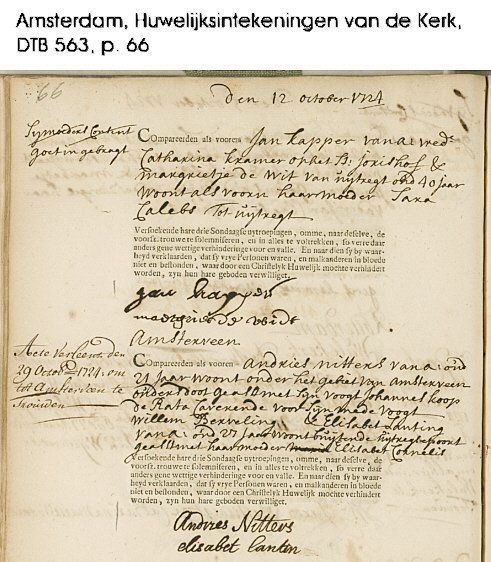 Amsterdam, Huwelijksintekeningen van de Kerk,
DTB 563, p. 66
66
den 12 october 1724
goet ingebragt
Compareerden als vooren Jan Kapper van a: wed:
Catharina Kramer op het B: Jorishof &
Margrietje de Wit van uijtregt oud 40 Jaar
woont als voorn haar moeder Sara
Calebs tot uijtregt
Versoekende hare drie Sondaagse uytroepingen, omme, naar deselve, de
voorsz. trouwe te solemniseren, en in alles te voltrekken, so verre daar
anders gene wettige verhinderinge voor en valle. En naar dien sy by waar-
heyd verklaarden, dat sy vrye Personen waren, en malkanderen in bloede
niet en bestonden, waar door een Christelyk Huwelijk mochte verhindert
worden, zyn hun hare geboden verwilliget.
Jan kapper
margriete de
Amsterveen
Acte verleent den
29 October 1724 om
tot Amsterveen te
Trouwen
Compareerden als vooren Andries Nitters van a: oud
21 Jaar woont onder het gebiet van Amsterveen
ouders doot geass met Sijn voogt Johannes Koop
de Rata Caverende voor Sijn mede voogt
Willem Berveling & Elisabet Santing
van a: ou 27 Jaar woont buijten de uijtregtse poort
geass met haar moeder Elisabet Cornelis
Versoekende hare drie Sondaagse uytroepingen, omme, naar deselve, de
voorsz. trouwe te solemniseren, en in alles te voltrekken, so verre daar
anders gene wettige verhinderinge voor en valle. En naar dien sy by waar-
heyd verklaarden, dat sy vrye Personen waren, en malkanderen in bloede
niet en bestonden, waar door een Christelyk Huwelijk mochte verhindert
worden, zyn hun hare geboden verwilliget.
Andries Nitters
elisabet